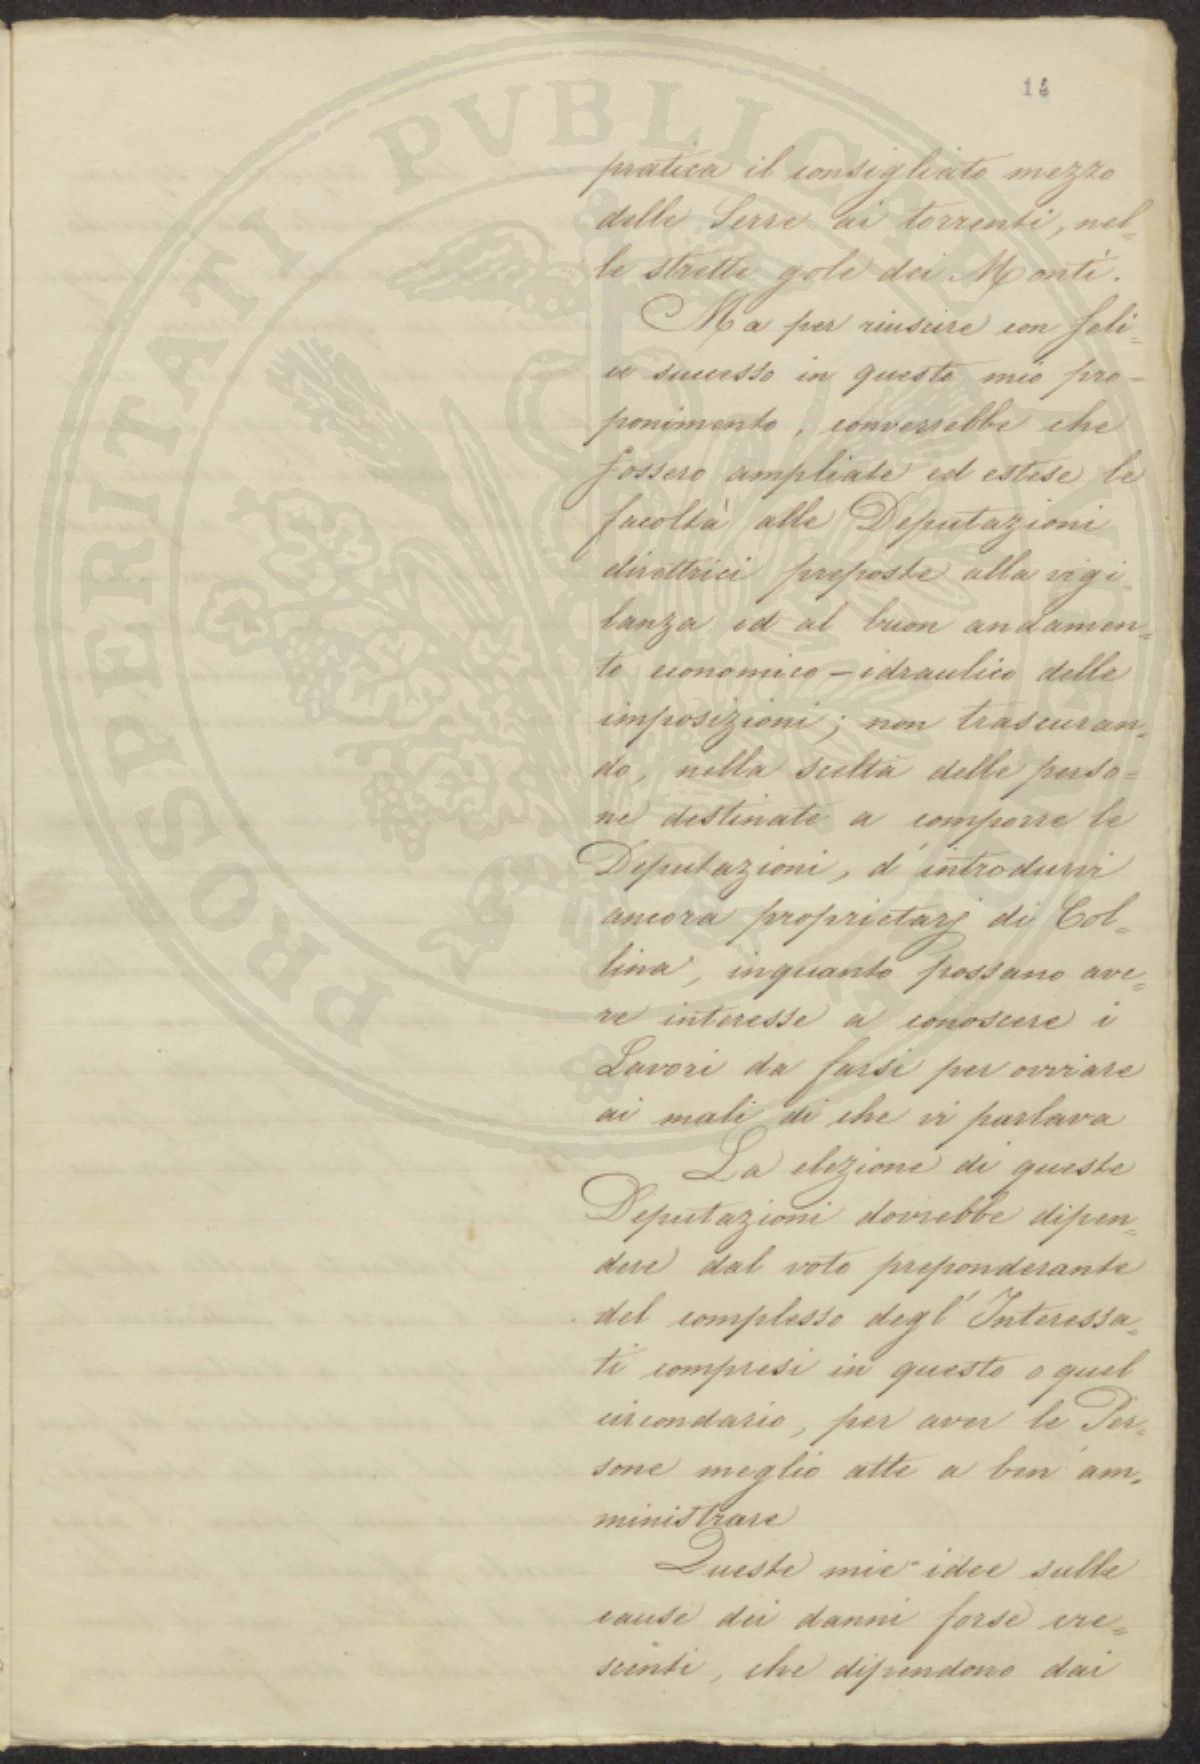 14
pratica il consigliato mezzo
delle Serre ai torrenti, nel=
le strette gole dei Monti.
Ma per riuscire con feli=
ce successo in questo mio pro=
ponimento, converrebbe che
fossero ampliate ed estese le
facoltà alle Deputazioni
direttrici preposte alla vigi
lanza ed al buon andamen=
to economico=idraulico delle
imposizioni; non trascuran=
do, nella scelta delle perso=
ne destinate a comporre le
Deputazioni, d'introdurvi
ancora proprietarj di Col=
lina, inquanto possano ave=
re interesse a conoscere i
Lavori da farsi per ovviare
ai mali di che vi parlava
La elezione di queste
Deputazioni dovrebbe dipen=
dere dal voto preponderante
del complesso degl'Interessa=
ti compresi in questo o quel
circondario, per aver le Per=
sone meglio atte a ben am=
ministrare
Queste mie idee sulle
cause dei danni forse cre=
scenti, che dipendono dai
PROSPERITATI PVBLICAE